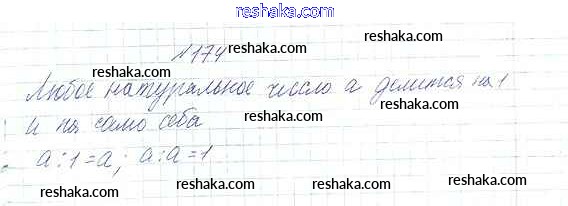 reshaka.com
№174
reshaka.com
reshaka.com
reshaka.com
Любое натуральное число a делится на 1
и на само себа
reshaka.com
reshaka.com
a:1=a; a:a=1
reshaka.com
reshaka.com